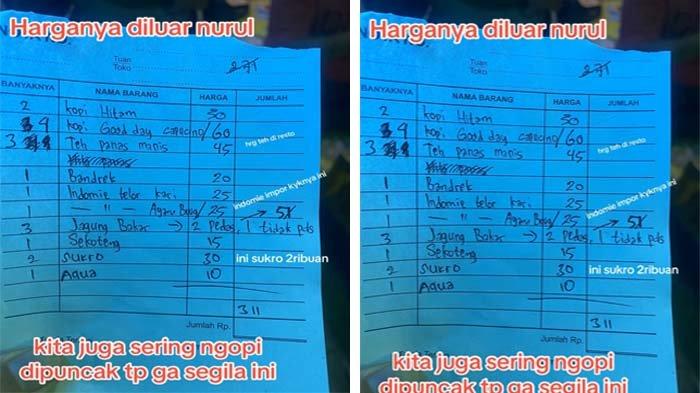 Harganya diluar nurul
Tuan
Toko
271
BANYAKNYA NAMA BARANG HARGA JUMLAH
2 Kopi Hitam 30
4 Kopi Good day capucino/ 60
3 Teh panas manis 45 hrg teh di resto
1 Bandrek 20
1 Indomie telor kari 25 indomie impor kyknya ini
1 — " — Ayam Bwg/ 25 → 5X
3 Jagung Bakar → 2 pedas, 1 tidak pds
1 Sekoteng 15
2 sukro 30 ini sukro 2ribuan
1 Aqua 10
311
Jumlah Rp.
kita juga sering ngopi
dipuncak tp ga segila ini
Harganya diluar nurul
Tuan
Toko
271
BANYAKNYA NAMA BARANG HARGA JUMLAH
2 Kopi Hitam 30
4 Kopi Good day capucino/ 60
3 Teh panas manis 45 hrg teh di resto
1 Bandrek 20
1 Indomie telor kari 25 indomie impor kyknya ini
1 — " — Ayam Bwg/ 25 → 5X
3 Jagung Bakar → 2 pedas, 1 tidak pds
1 Sekoteng 15
2 sukro 30 ini sukro 2ribuan
1 Aqua 10
311
Jumlah Rp.
kita juga sering ngopi
dipuncak tp ga segila ini